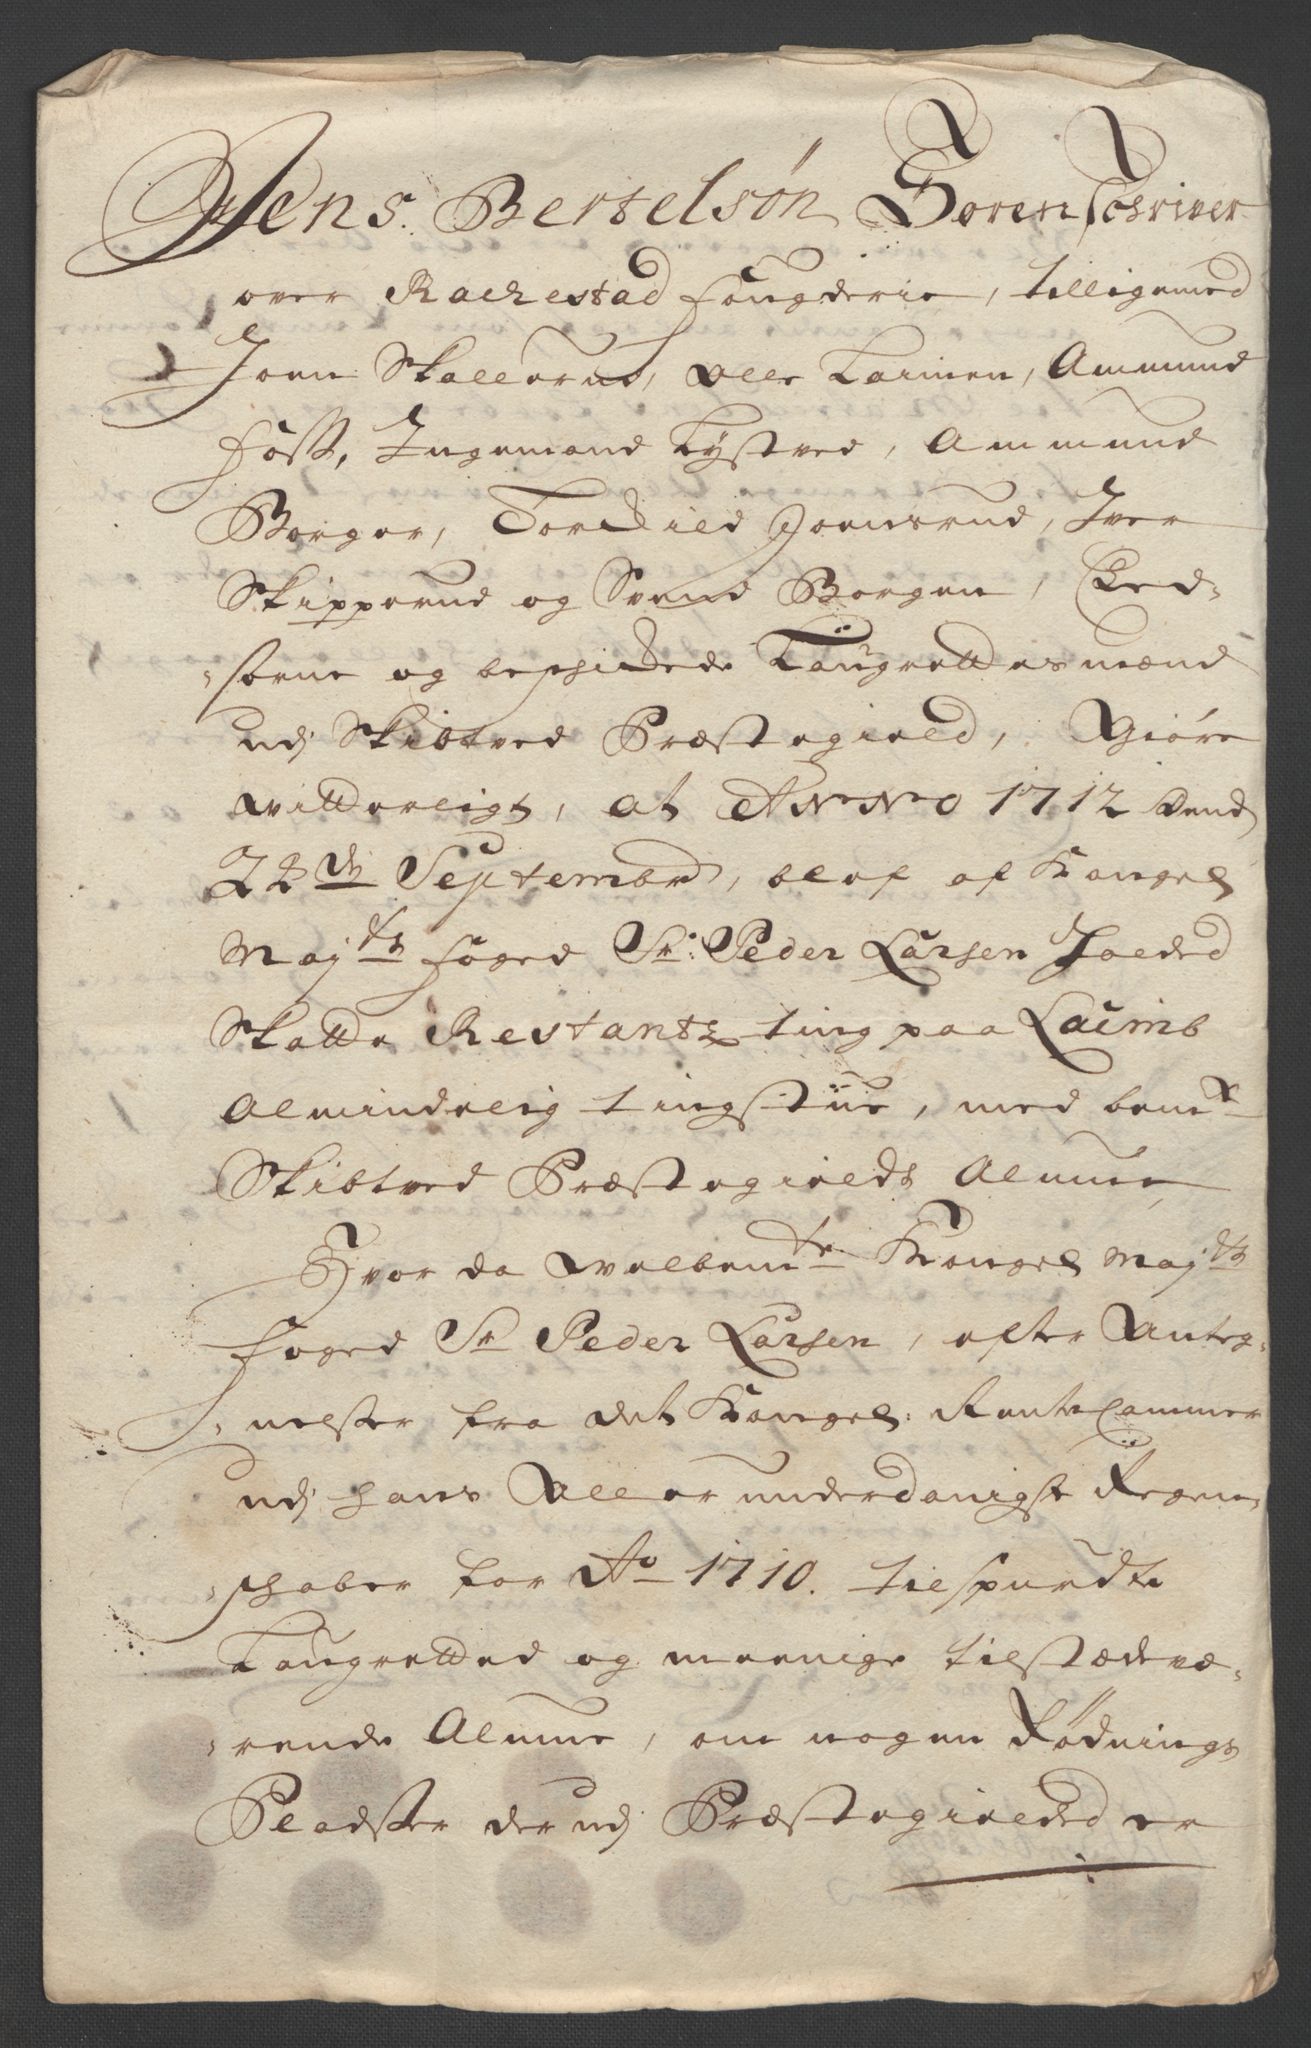 Jens Bertelsøn Sorenschriver
over Rachestad fougderie, tilligemed
Joen Skallerud, Olle Laimen, Ammund
foss, Ingemand Lystved, Ammund
Borger, Torchild Joensrud, Iver
Skipperud og Svend Borgen, Eed-
sorne og beschichede Laugrettesmænd
udj Skibtved Præstegield, Giøre
witterligt, at ANNO 1712 dend
22 de Septembr, blef af Kongel
Maj ts foged Sr. Peder Larsen holded
Skatte Restantz ting paa Laimb
Almindelig tingstue, med bem te
Skibtved Præstegields Almue
Hvor da welbem te Kongel Maj ts
foged Sr Peder Larsen, efter Anteg-
nelser fra det Kongel: Rente Cammer
udj hans Allerunderdanigste Regen-
schaber for Ao 1710. tilspurdte
Laugretted og meenige tilstædevæ-
rende Almue, om nogen Rødnings
Pladster der udj Præstegielded er